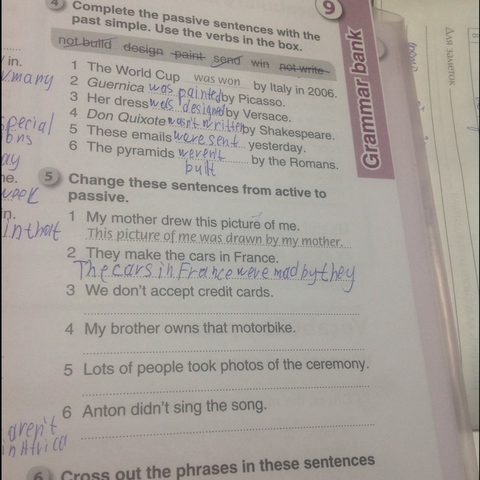 4 Complete the passive sentences with the
past simple. Use the verbs in the box.
not build design paint send win not write
1 The World Cup was won by Italy in 2006.
2 Guernica was painted by Picasso.
3 Her dress was designed by Versace.
4 Don Quixote wasn't written by Shakespeare.
5 These emails were sent yesterday.
6 The pyramids weren't by the Romans.
built
5 Change these sentences from active to
passive.
1 My mother drew this picture of me.
This picture of me was drawn by my mother.
2 They make the cars in France.
The cars in France were mad by they
3 We don't accept credit cards.
4 My brother owns that motorbike.
5 Lots of people took photos of the ceremony.
6 Anton didn't sing the song.
6 Cross out the phrases in these sentences
9
Grammar bank
in.
many
pecial
ons
ay
ne.
week
in.
in that
aren't
in Africa
Для заметок